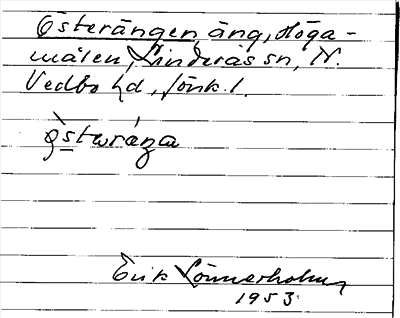 Österängen, äng, Höga-
målen, Linderås sn, N.
Vedbo hd, Jönk. l.
östəráŋa
Erik Lönnerholm
1953.